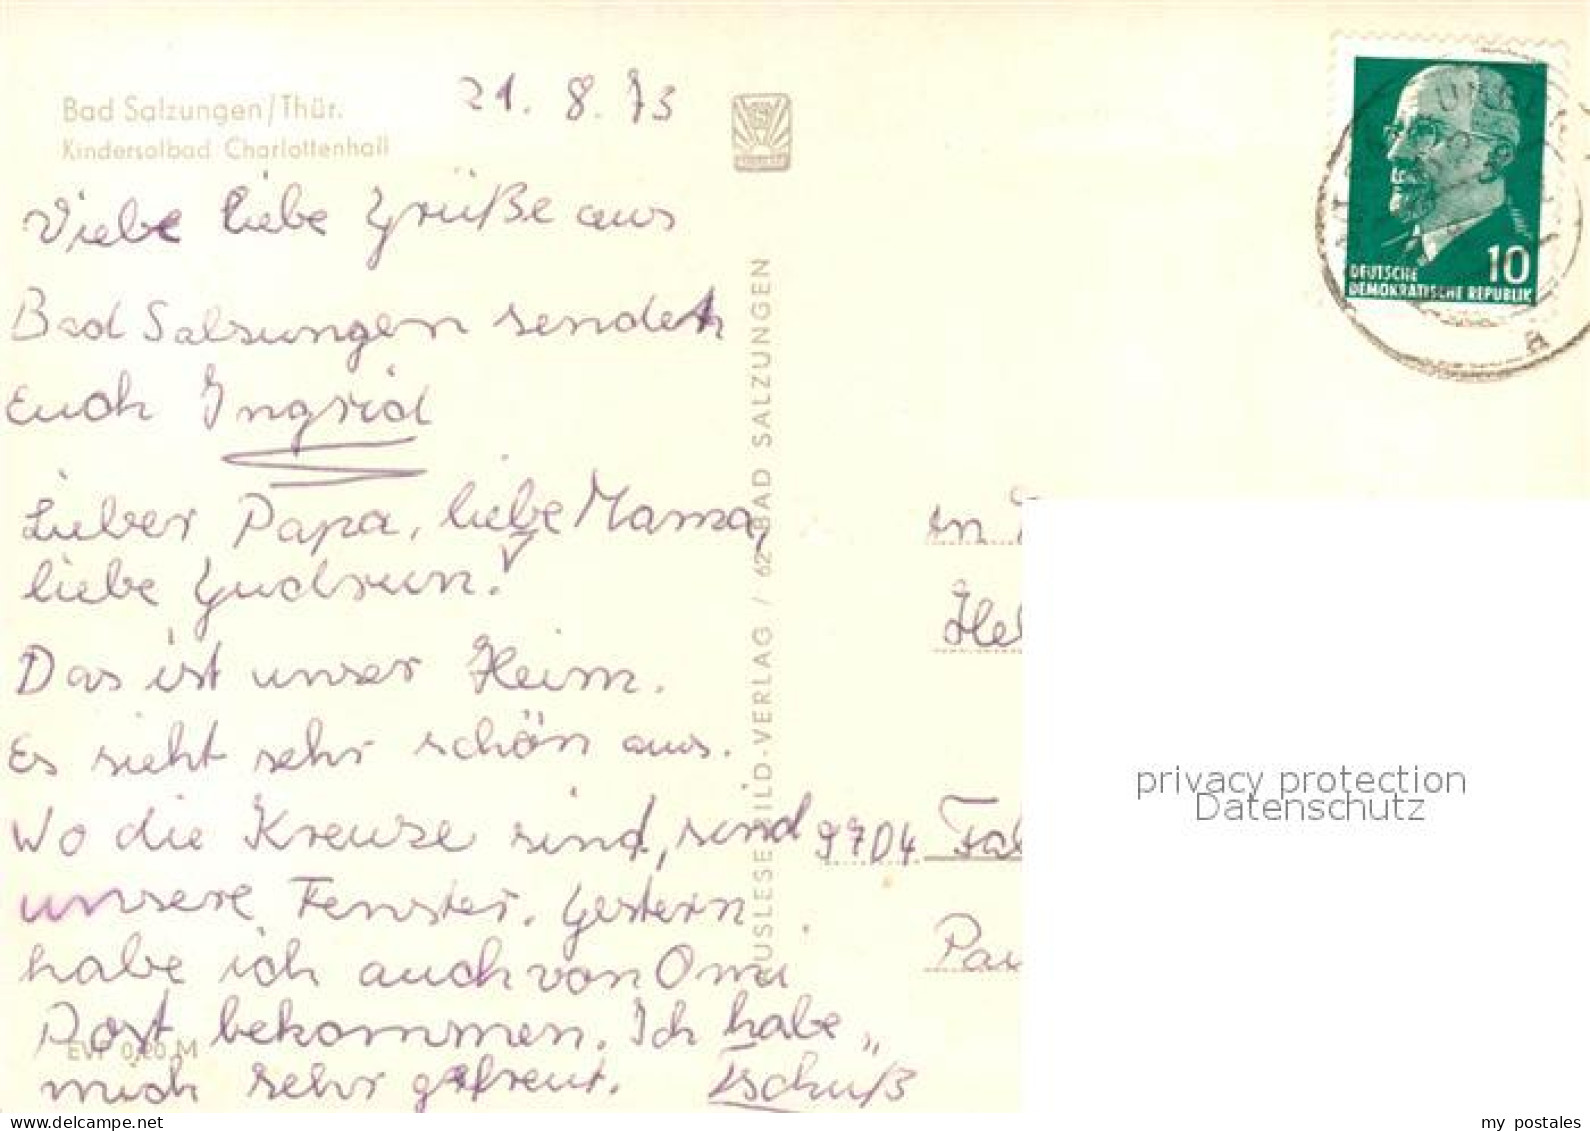 Bad Salzungen/Thür.
Kindersolbad Charlottenhall
21. 8. 73
Viele liebe Grüße aus
Bad Salzungen sendet
Euch Ingrid
Lieber Papa, liebe Mama,
liebe Gudrun!
Das ist unser Heim.
Es sieht sehr schön aus.
Wo die Kreuze sind, sind
unsere Fenster. Gestern
habe ich auch von Omi
Post bekommen. Ich habe
mich sehr gefreut. Tschüß
EVP 0,20 M
AUSLESE-BILD-VERLAG / 62 BAD SALZUNGEN
10
DEUTSCHE
DEMOKRATISCHE REPUBLIK
a
An
Hel
9704 Fal
Pau
privacy protection
Datenschutz
www.delcampe.net
my_postales